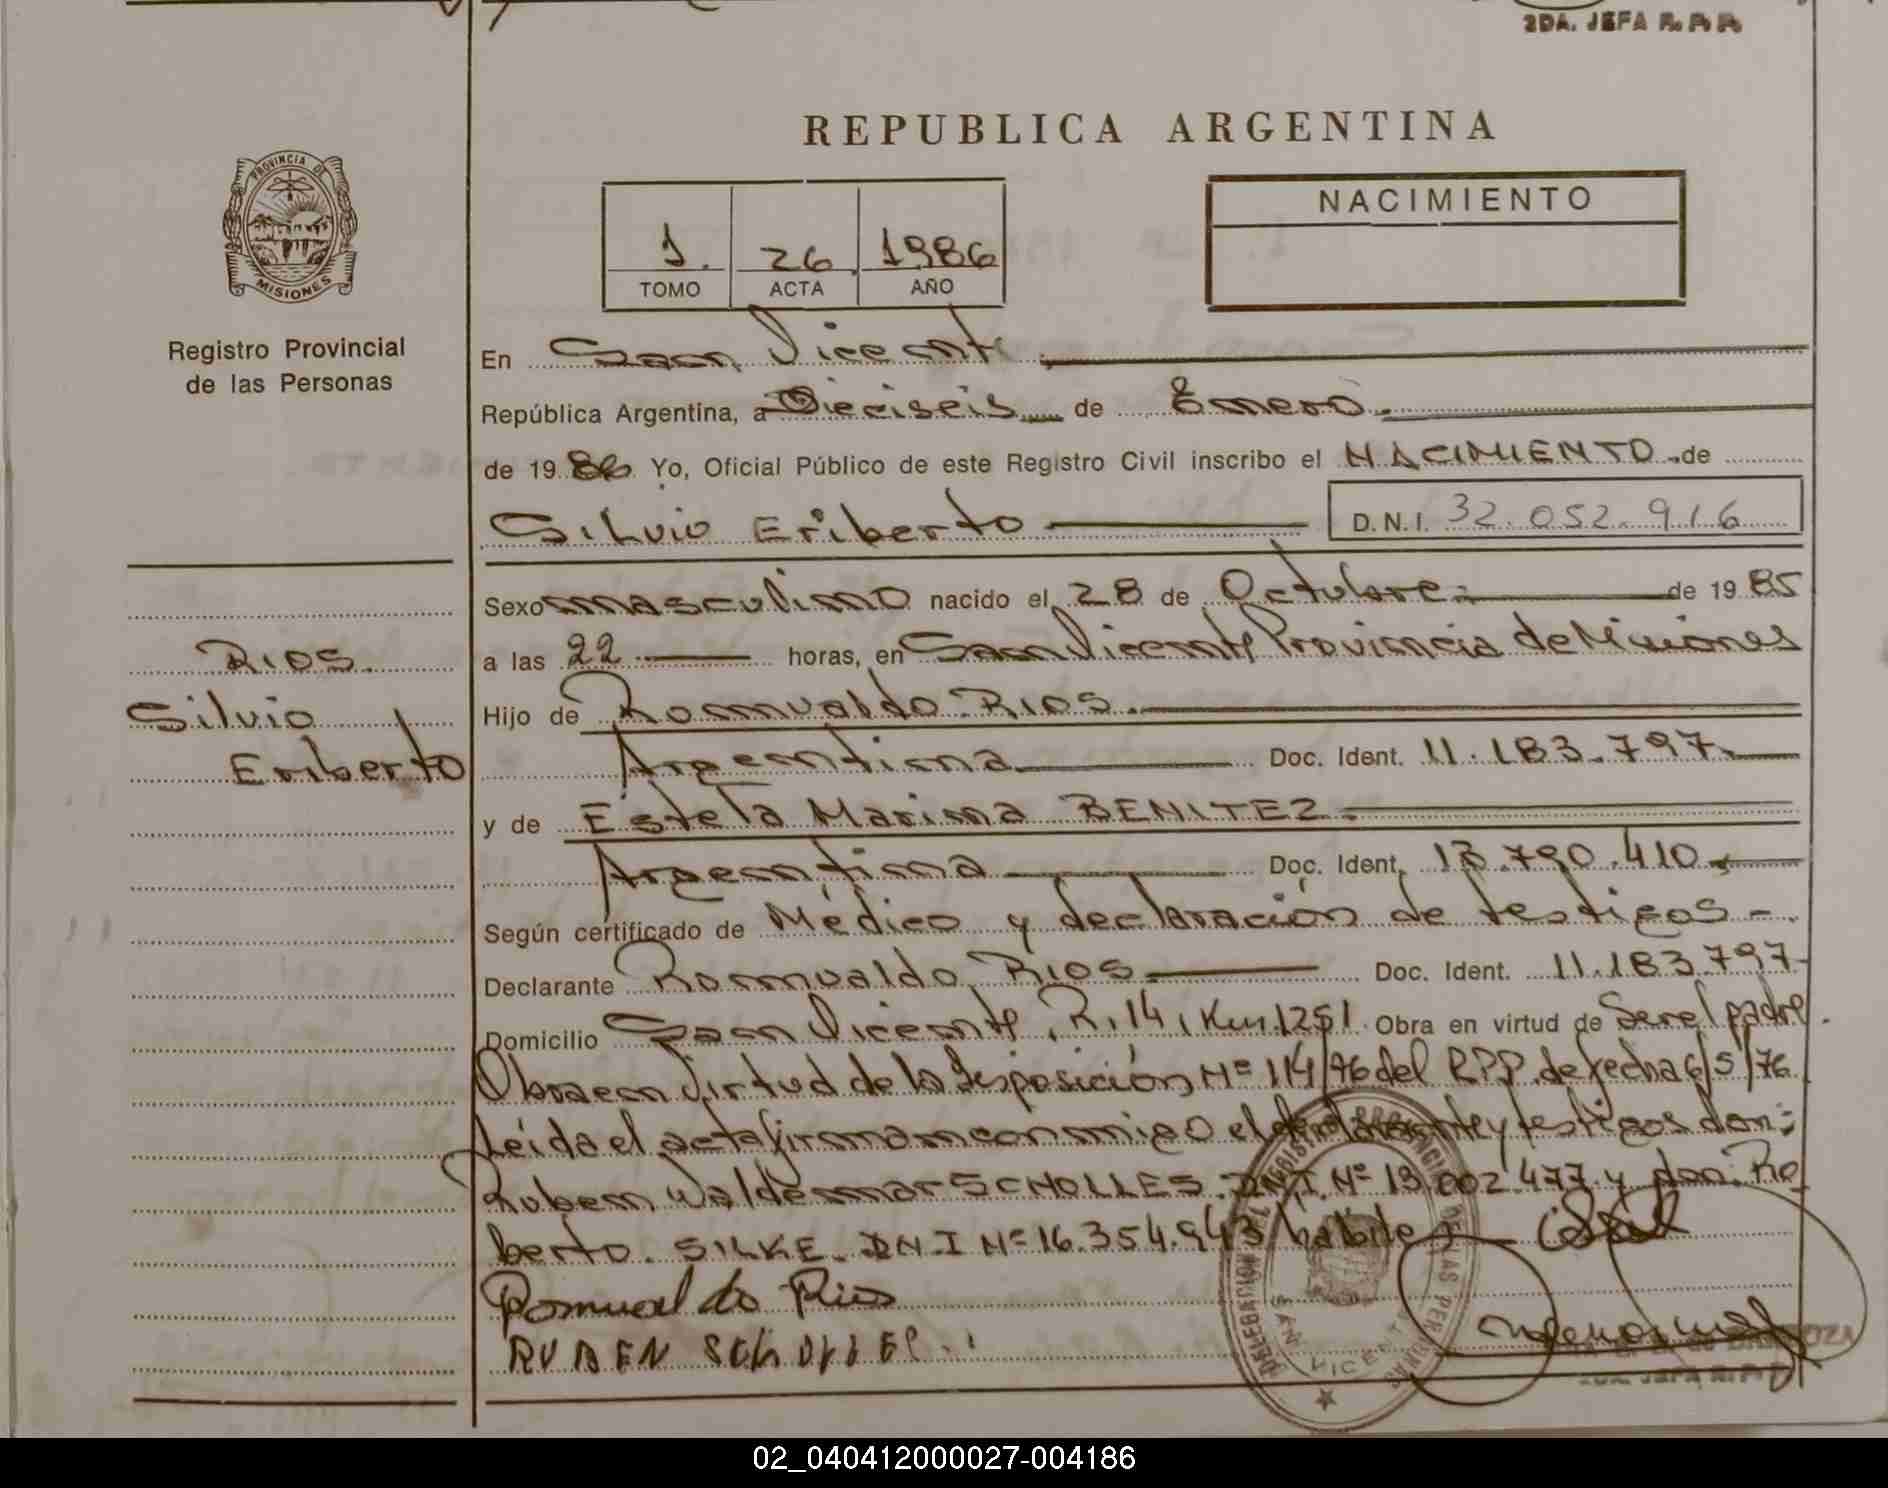 2DA. JEFA R. P. P.
REPUBLICA ARGENTINA
PROVINCIA DE
MISIONES
Registro Provincial
de las Personas
1. 26 1986
TOMO ACTA AÑO
NACIMIENTO
En San Vicente
República Argentina, a Dieciseis de Enero.
de 19 86 Yo, Oficial Público de este Registro Civil inscribo el NACIMIENTO de
Silvio Eriberto D.N.I. 32.052.916
RIOS.
Silvio
Eriberto
Sexo masculino nacido el 28 de Octubre de 19 85
a las 22 horas, en San Vicente Provincia de Misiones
Hijo de Romualdo RIOS.
Argentina Doc. Ident. 11.183.797.
y de Estela Marina BENITEZ.
Argentina Doc. Ident. 13.790.410
Según certificado de Médico y declaración de testigos -.
Declarante Romualdo RIOS Doc. Ident. 11.183.797-
Domicilio San Vicente, R. 14, Km. 1251. Obra en virtud de Ser el padre.
Obra en virtud de la Disposición Nº 114/76 del R.P.P. de fecha 6/5/76
Leída el acta firman conmigo el declarante y testigos don:
Ruben Waldemar SCHOLLES. DNI. Nº 13.002.477 y don: Ro
berto. SILKE. DNI Nº 16.354.943 habile
Romualdo Rios
RUBEN SCHOLLES.
DELEGACION
SAN VICENTE
2DA. JEFA R. P. P.
02_040412000027-004186